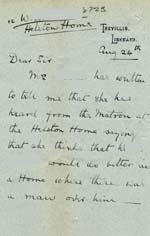 8723
Helston Home
TREVILLIS,
LISKEARD.
Aug 24th
Dear Sir
Mrs has written
to tell me that she has
heard from the Matron at
the Helston Home saying
that she thinks that he
would do better in
a Home where there was
a man over him —